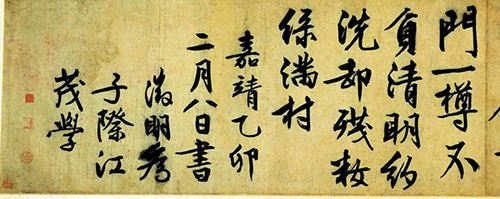 門一樽不
負清明約
洗却殘
綠滿村
嘉靖乙卯
二月八日書
徵明為
子際江
茂學